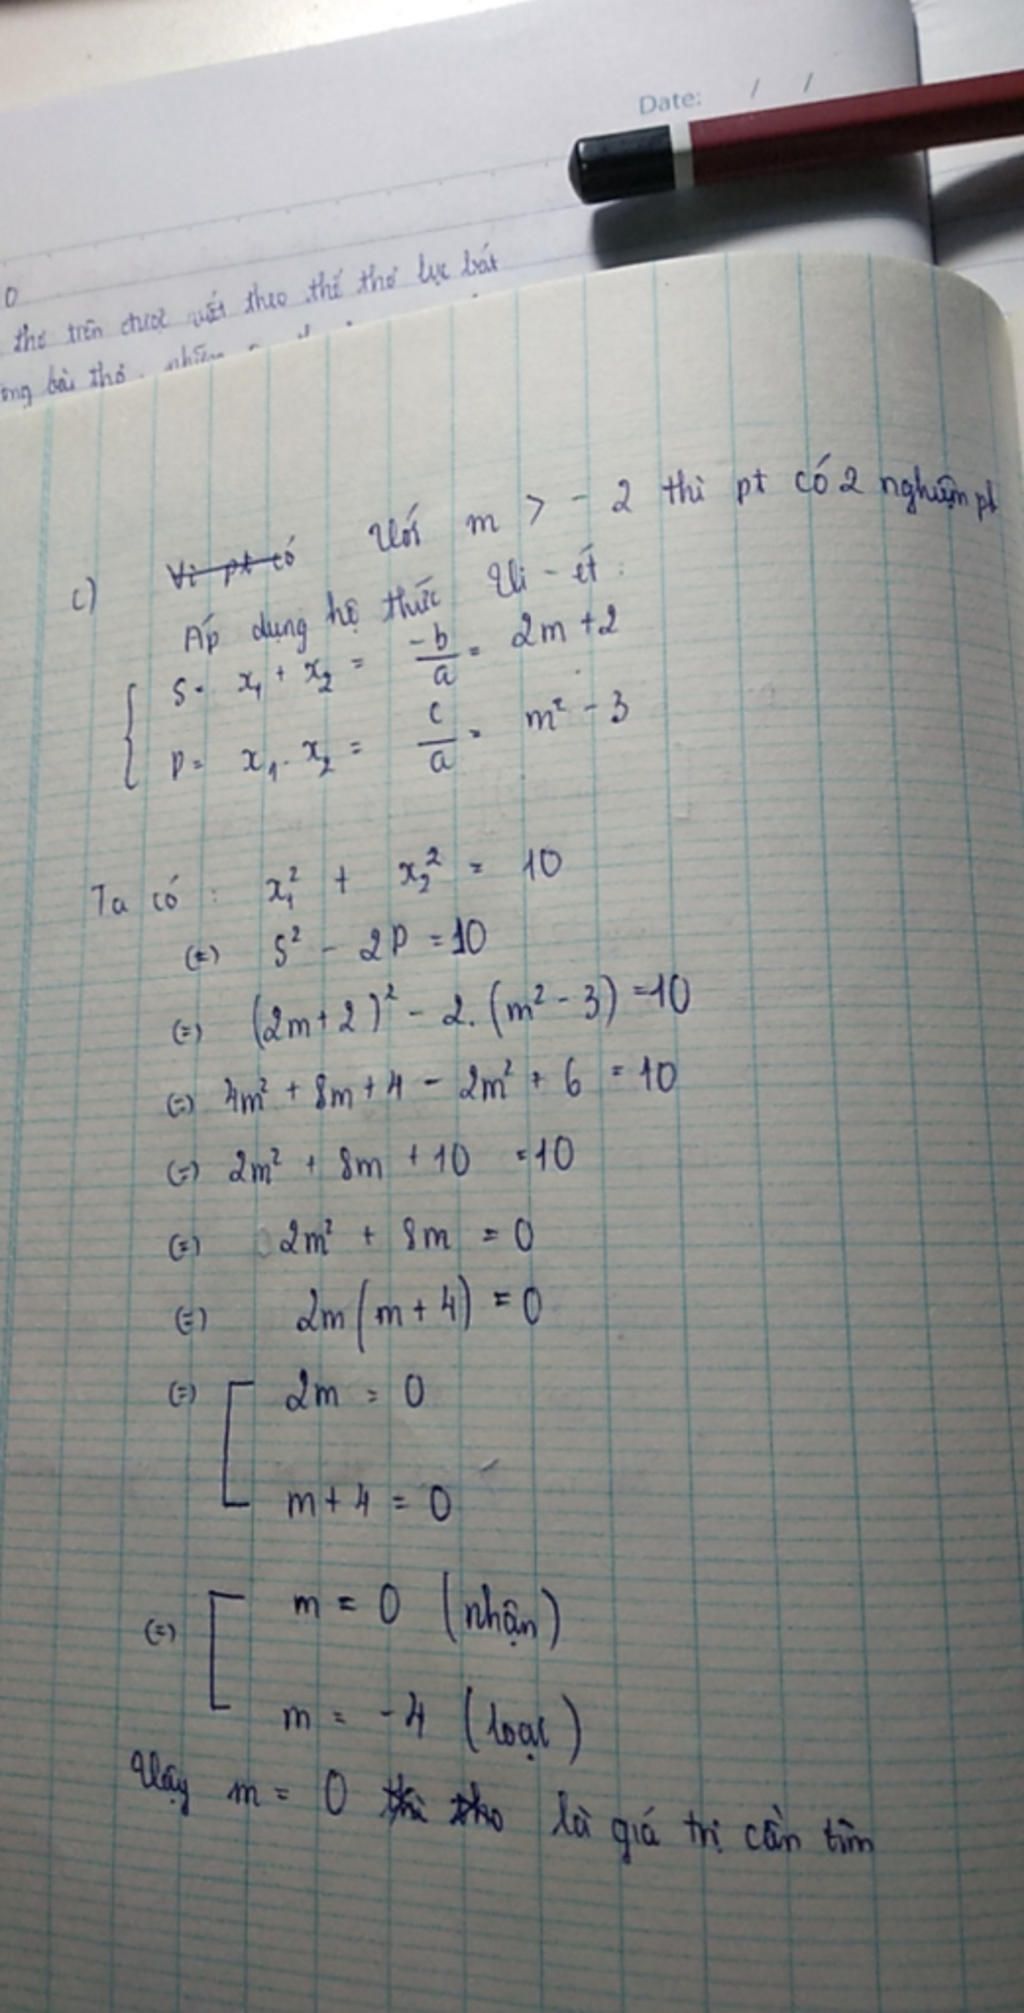 Date: / /
0
thơ trên được viết theo thể thơ lục bát
bài thơ
c) Vì pt có Với m > - 2 thì pt có 2 nghiệm pb
Áp dụng hệ thức Vi - ét :
S = x₁ + x₂ = -b/a = 2m + 2
P = x₁ . x₂ = c/a = m² - 3
Ta có : x₁² + x₂² = 10
(=) S² - 2P = 10
(=) (2m + 2)² - 2. (m² - 3) = 10
(=) 4m² + 8m + 4 - 2m² + 6 = 10
(=) 2m² + 8m + 10 = 10
(=) 2m² + 8m = 0
(=) 2m (m + 4) = 0
(=) [ 2m = 0
m + 4 = 0
(=) [ m = 0 (nhận)
m = -4 (loại)
Vậy m = 0 thì tho là giá trị cần tìm